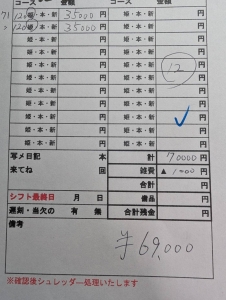 コース 金額 コース 金額
71 120 姫・本・新 35000円 姫・本・新 円
120 姫・本・新 35000円 姫・本・新 円
姫・本・新 円 姫・本・新 円
姫・本・新 円 姫・本・新 12 円
姫・本・新 円 姫・本・新 円
姫・本・新 円 姫・本・新 円
姫・本・新 円 姫・本・新 円
姫・本・新 円 姫・本・新 円
姫・本・新 円 姫・本・新 円
姫・本・新 円 姫・本・新 円
姫・本・新 円 姫・本・新 円
写メ日記 本 計 70000円
来てね 回 雑費 ▲1000円
合計 円
シフト最終日 月 日 備品 円
遅刻・当欠の 有 無 合計残金 円
備考
¥69,000
※確認後シュレッダー処理いたします